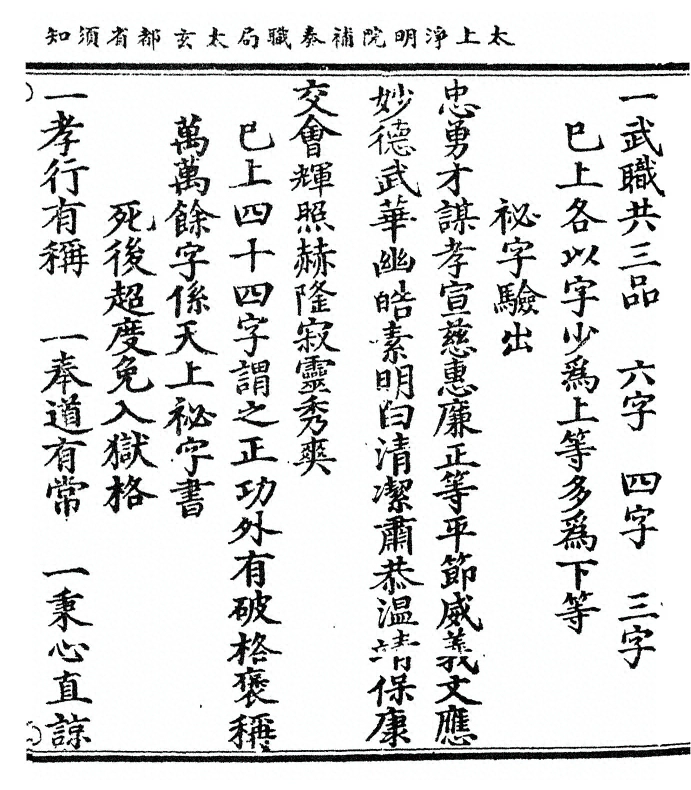 太上淨明院補奏職局太玄都省須知
一武職共三品 六字 四字 三字
巳上各以字少爲上等多爲下等
祕字驗出
忠勇才謀孝宣慈惠廉正等平節威義文應
妙德武華幽皓素明白清潔肅恭溫靖保康
交會輝照赫隆寂靈秀爽
巳上四十四字謂之正功外有破格褒稱
萬萬餘字係天上祕字書
死後超度免入獄格
一孝行有稱 一奉道有常 一秉心直諒